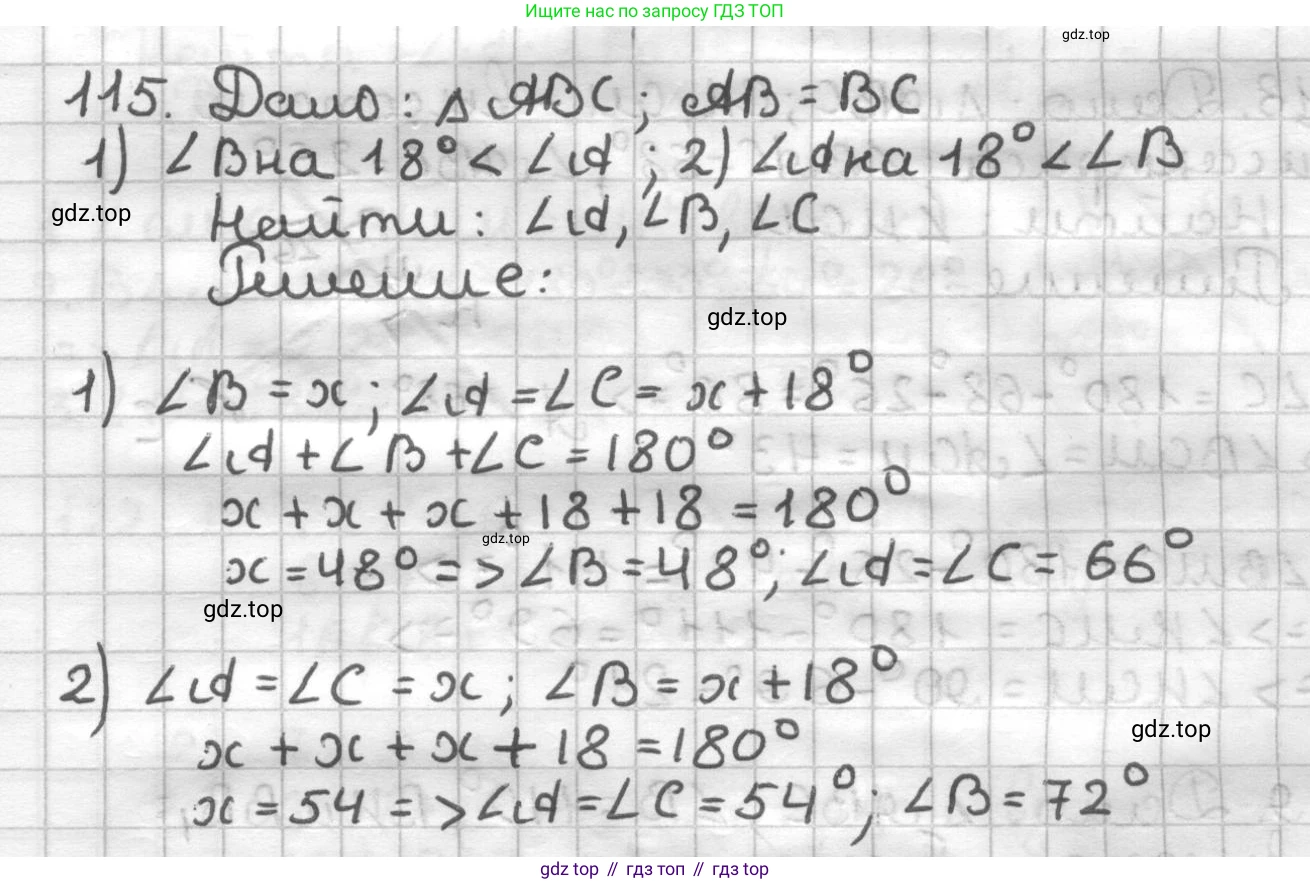 Ищите нас по запросу ГДЗ ТОП
gdz.top
115. Дано: Δ ABC; AB = BC
1) ∠B на 18° < ∠A; 2) ∠A на 18° < ∠B
gdz.top
Найти: ∠A, ∠B, ∠C
Решение:
gdz.top
1) ∠B = x; ∠A = ∠C = x + 18°
∠A + ∠B + ∠C = 180°
x + x + x + 18 + 18 = 180°
gdz.top
x = 48° => ∠B = 48°; ∠A = ∠C = 66°
gdz.top
2) ∠A = ∠C = x; ∠B = x + 18°
gdz.top
x + x + x + 18 = 180°
x = 54 => ∠A = ∠C = 54°; ∠B = 72°
gdz.top // гдз топ // gdz top